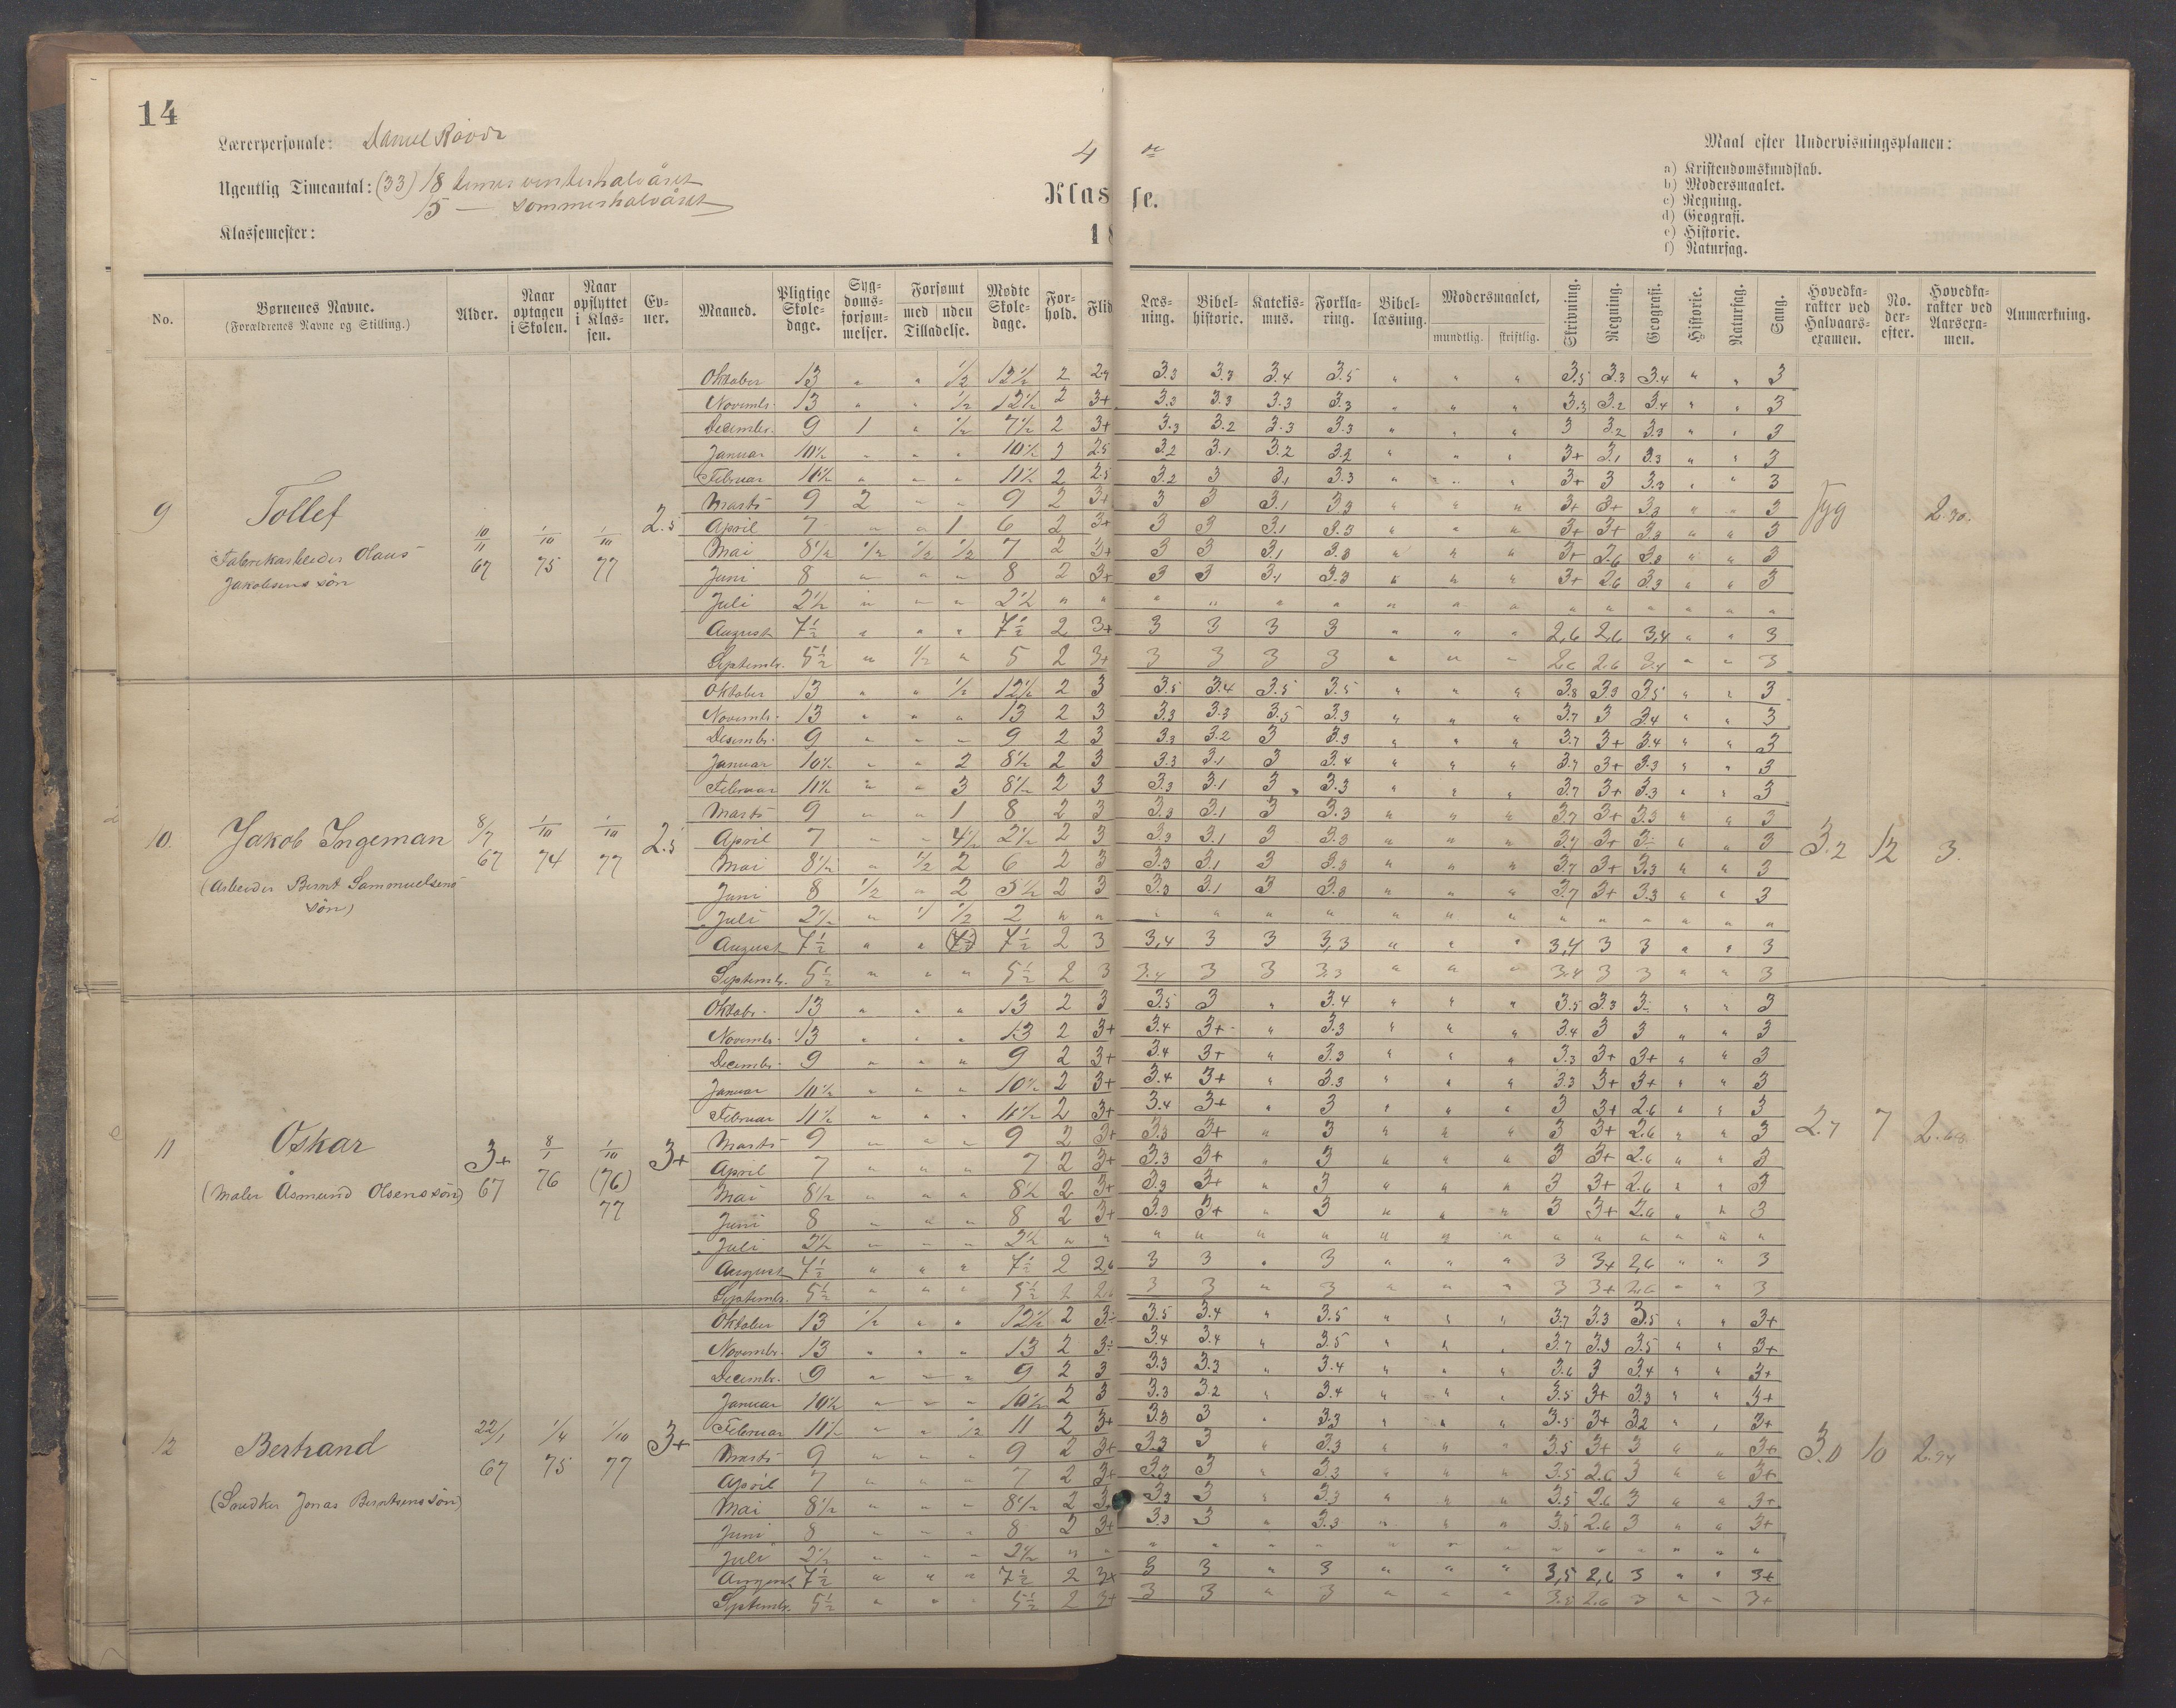 14
Lærerpersonale: Daniel
Ugentlig Timeantal: (33) 18 timer vinterhalvåret
15 — sommerhalvåret
Klassemester:
4 de
Klasse.
18
Maal efter Undervisningsplanen:
a) Kristendomskundskab.
b) Modersmaalet.
c) Regning.
d) Geografi.
e) Historie.
f) Naturfag.
No. Børnenes Navne. (Forældrenes Navne og Stilling.) Alder. Naar optagen i Skolen. Naar opflyttet i Klassen. Evner. Maaned. Pligtige Skoledage. Sygdomsforsømmelser. Forsømt med uden Tilladelse. Mødte Skoledage. Forhold. Flid Læsning. Bibelhistorie. Katekismus. Forklaring. Bibellæsning. Modersmaalet, mundtlig. skriftlig. Skrivning. Regning. Geografi. Historie. Naturfag. Sang. Hovedkarakter ved Halvaarsexamen. No. derefter. Hovedkarakter ved Aarsexamen. Anmærkning.
9 Tollef
Fabrikarbeider Olaus
Jakobsens søn
10/11 67 1/10 75 1/10 77 2.5
Oktober 13 " " 1/2 12 1/2 2 3.3 3.3 3.4 3.5 " " " 3.5 3.3 3.4 " " 3
Novembr. 13 " " 1/2 12 1/2 2 3+ 3.3 3.3 3.3 3.3 " " " 3.3 3.2 3.4 " " 3
Decembr. 9 1 " 1/2 7 1/2 2 3+ 3.3 3.2 3.3 3.3 " " " 3 3.2 3.3 " " 3
Januar 10 1/2 " " " 10 1/2 2 2.5 3.2 3.1 3.2 3.2 " " " 3+ 3.1 3.3 " " 3
Februar 11 1/2 " " " 11 1/2 2 2.5 3.2 3 3.1 3.3 " " " 3+ 3 3.3 " " 3
Marts 9 2 " " 9 2 3+ 3 3 3.1 3.3 " " " 3+ 3+ 3.3 " " 3
April 7 " " 1 6 2 3+ 3 3 3.1 3.3 " " " 3+ 3+ 3.3 " " 3
Mai 8 1/2 1/2 1/2 1/2 7 2 3+ 3 3 3.1 3.3 " " " 3+ 2.6 3.3 " " 3
Juni 8 " " " 8 2 3+ 3 3 3.1 3.3 " " " 3+ 2.6 3.3 " " 3
Juli 2 1/2 " " " 2 1/2 " " " " " " " " " " " " " " "
August 7 1/2 " " " 7 1/2 2 3+ 3 3 3 3 " " " 2,6 2,6 3,4 " " 3
Septembr. 5 1/2 " 1/2 " 5 2 3+ 3 3 3 3 " " " 2.6 2.6 3.4 " " 3
syg 2.30
10. Jakob Ingeman
(Arbeider Bernt Sammuelsens
søn)
8/7 67 1/10 74 1/10 77 2.5
Oktober 13 " " 1/2 12 1/2 2 3 3.5 3.4 3.5 3.5 " " " 3.8 3.3 3.5 " " 3
Novembr. 13 " " " 13 2 3 3.3 3.3 3.5 3.3 " " " 3.7 3 3.4 " " 3
Desembr. 9 " " " 9 2 3 3.3 3.2 3 3.3 " " " 3.7 3+ 3.4 " " 3
Januar 10 1/2 " " 2 8 1/2 2 3 3.3 3.1 3 3.4 " " " 3.7 3+ 3.3 " " 3
Februar 11 1/2 " " 3 8 1/2 2 3 3.3 3.1 3 3.3 " " " 3.7 3+ 3.3 " " 3
Marts 9 " " 1 8 2 3 3.3 3.1 3 3.3 " " " 3.7 3+ 3.3 " " 3
April 7 " " 4 1/2 2 1/2 2 3 3.3 3.1 3 3.3 " " " 3.7 3+ 3 " " 3
Mai 8 1/2 " 1/2 2 6 2 3 3.3 3.1 3 3.3 " " " 3.7 3+ 3.3 " " 3
Juni 8 1/2 " 2 5 1/2 2 3 3.3 3.1 3 3.3 " " " 3.7 3+ 3.3 " " 3
Juli 2 1/2 " " 1/2 2 " " " " " " " " " " " " " " "
August 7 1/2 " " (7 1/2) 7 1/2 2 3 3,4 3 3 3,3 " " " 3,4 3 3 " " 3
Septembr. 5 1/2 " " " 5 1/2 2 3 3.4 3 3 3.3 " " " 3.4 3 3 " " 3
3.2 12 3.
11 Oskar
(Maler Åsmund Olsens søn)
3+ 67 8/1 76 1/10 (76) 77 3+
Oktobr. 13 " " " 13 2 3 3.5 3 " 3.4 " " " 3.5 3.3 3 " " 3
Novembr. 13 " " " 13 2 3+ 3.4 3+ " 3.3 " " " 3.4 3 3 " " 3
Decembr. 9 " " " 9 2 3+ 3.4 3+ " 3.3 " " " 3.3 3+ 3+ " " 3
Januar 10 1/2 " " " 10 1/2 2 3+ 3.4 3+ " 3.3 " " " 3.3 3+ 3+ " " 3
Februar 11 1/2 " " " 11 1/2 2 3+ 3.4 3+ " 3 " " " 3 3+ 2.6 " " 3
Marts 9 " " " 9 2 3+ 3.3 3+ " 3 " " " 3 3+ 2.6 " " 3
April 7 " " " 7 2 3+ 3.3 3+ " 3 " " " 3 3+ 2.6 " " 3
Mai 8 1/2 " " " 8 1/2 2 3+ 3.3 3+ " 3 " " " 3 3+ 2.6 " " 3
Juni 8 " " " 8 2 3+ 3.3 3+ " 3 " " " 3 3+ 2.6 " " 3
Juli 2 1/2 " " " 2 1/2 " " " " " " " " " " " " " " "
August 7 1/2 " " " 7 1/2 2 2,6 3 3 " 3 " " " 3 3+ 2,6 " " 3
Septembr. 5 1/2 " " " 5 1/2 2 2.6 3 3 " 3 " " " 3 3+ 2,6 " " 3
2.7 7 2.68
12 Bertrand
(Snedker Jonas Berntsens søn)
22/1 67 1/4 75 1/10 77 3+
Oktober 13 1/2 " " 12 1/2 2 3÷ 3.5 3.4 " 3.5 " " " 3.7 3.3 3.5 " " 3+
Novembr. 13 " " " 13 2 3÷ 3.4 3.4 " 3.5 " " " 3.7 3.3 3.5 " " 3+
Decembr. 9 " " " 9 2 3 3.3 3.3 " 3.4 " " " 3.6 3 3.4 " " 3+
Januar 10 1/2 " " " 10 1/2 2 3 3.3 3.2 " 3.4 " " " 3.5 3+ 3.3 " " 3+
Februar 11 1/2 " " 1/2 11 2 3+ 3.3 3 " 3.3 " " " 3.5 3+ 3.2 " " 3+
Marts 9 " " " 9 2 3+ 3.3 3 " 3.3 " " " 3.5 3+ 3 " " 3+
April 7 " " " 7 2 3+ 3.3 3 " 3.3 " " " 3.5 2.6 3 " " 3+
Mai 8 1/2 " " " 8 1/2 2 3.3 3 " 3.3 " " " 3.5 2.6 3 " " 3+
Juni 8 " " " 8 2 3+ 3.3 3 " 3.3 " " " 3.5 2.6 3 " " 3+
Juli 2 1/2 " " " 2 1/2 " " " " " " " " " " " " " " "
August 7 1/2 " " " 7 1/2 2 3+ 3 3 " 3 " " " 3,5 2,6 3 " " 3+
Septembr. 5 1/2 " " " 5 1/2 2 3+ 3 3 " 3 " " " 3.5 2.6 3 " " 3+
3.0 10 2.94